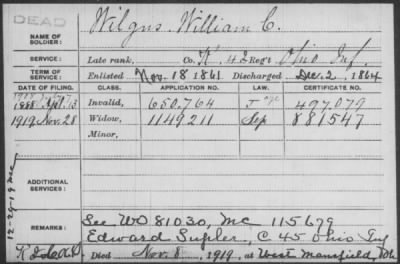 DEAD
Wilgus, William C.
NAME OF
SOLDIER:
SERVICE:
Late rank, Co. K, 42 Reg't Ohio Inf.
TERM OF
SERVICE:
Enlisted Nov. 18 1861 Discharged Dec. 2, 1864
DATE OF FILING. CLASS. APPLICATION NO. LAW. CERTIFICATE NO.
1888 Apl. 13 Invalid, 650,764 497,079
1919 Nov. 28 Widow, 1149211 Sep 881547
Minor,
ADDITIONAL
SERVICES:
12-29-19
REMARKS:
See WO 81030, MC 115679
Edward Supler, C 45 Ohio Inf
Died Nov. 8, 1919, at West Mansfield, Oh